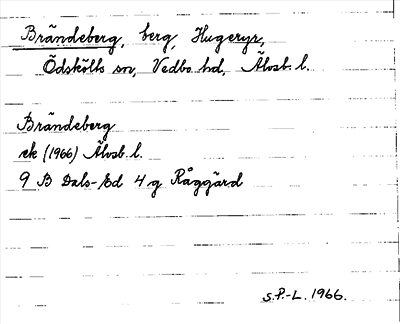 Brändeberg, berg, Hugeryr,
Ödskölts sn, Vedbo hd, Älvsb. l.
Brändeberg
ek (1966) Älvsb. l.
9 B Dals-Ed 4 g Råggärd
S.P.-L. 1966.